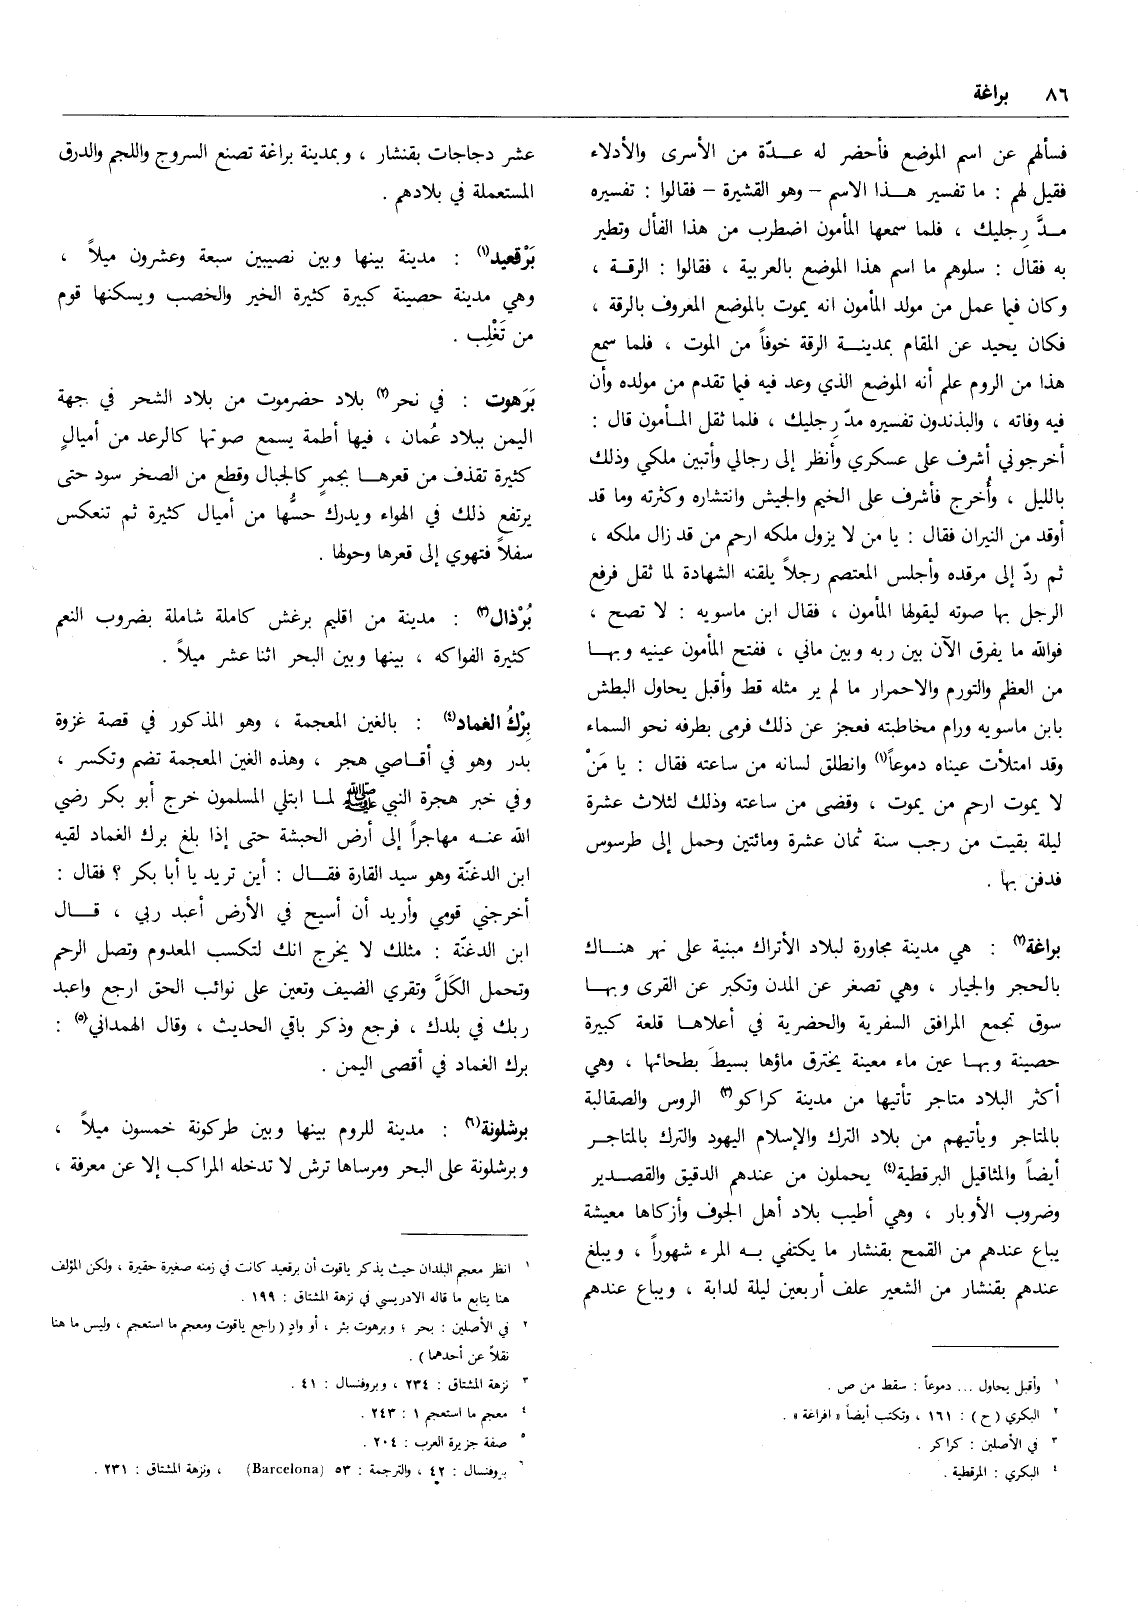 ٨٦ براغة
فسألهم عن اسم الموضع فأحضر له عدّة من الأسرى والأدلاء
فقيل لهم : ما تفسير هذا الاسم – وهو القشيرة – فقالوا : تفسيره
مدَّ رِجليك ، فلما سمعها المأمون اضطرب من هذا الفأل وتطير
به فقال : سلوهم ما اسم هذا الموضع بالعربية ، فقالوا : الرقة ،
وكان فيما عمل من مولد المأمون انه يموت بالموضع المعروف بالرقة ،
فكان يحيد عن المقام بمدينة الرقة خوفاً من الموت ، فلما سمع
هذا من الروم علم أنه الموضع الذي وعد فيه فيما تقدم من مولده وأن
فيه وفاته ، والبذندون تفسيره مدّ رِجليك ، فلما ثقل المأمون قال :
أخرجوني أشرف على عسكري وأنظر إلى رجالي وأتبين ملكي وذلك
بالليل ، وأُخرج فأشرف على الخيم والجيش وانتشاره وكثرته وما قد
أوقد من النيران فقال : يا من لا يزول ملكه ارحم من قد زال ملكه ،
ثم ردّ إلى مرقده وأجلس المعتصم رجلاً يلقنه الشهادة لما ثقل فرفع
الرجل بها صوته ليقولها المأمون ، فقال ابن ماسويه : لا تصح ،
فوالله ما يفرق الآن بين ربه وبين ماني ، ففتح المأمون عينيه وبها
من العظم والتورم والاحمرار ما لم ير مثله قط وأقبل يحاول البطش
بابن ماسويه ورام مخاطبته فعجز عن ذلك فرمى بطرفه نحو السماء
وقد امتلأت عيناه دموعاً(١) وانطلق لسانه من ساعته فقال : يا مَنْ
لا يموت ارحم من يموت ، وقضى من ساعته وذلك لثلاث عشرة
ليلة بقيت من رجب سنة ثمان عشرة ومائتين وحمل إلى طرسوس
فدفن بها .
براغة(٢) : هي مدينة مجاورة لبلاد الأتراك مبنية على نهر هناك
بالحجر والجيار ، وهي تصغر عن المدن وتكبر عن القرى وبها
سوق تجمع المرافق السفرية والحضرية في أعلاها قلعة كبيرة
حصينة وبها عين ماء معينة يخترق ماؤها بسيطَ بطحائها ، وهي
أكثر البلاد متاجر تأتيها من مدينة كراكو(٣) الروس والصقالبة
بالمتاجر ويأتيهم من بلاد الترك والإسلام اليهود والترك بالمتاجر
أيضاً والمثاقيل البرقطية(٤) يحملون من عندهم الدقيق والقصدير
وضروب الأوبار ، وهي أطيب بلاد أهل الجوف وأزكاها معيشة
يباع عندهم من القمح بقنشار ما يكتفي به المرء شهوراً ، ويبلغ
عندهم بقنشار من الشعير علف أربعين ليلة لدابة ، ويباع عندهم
١ وأقبل يحاول ... دموعاً : سقط من ص .
٢ البكري (ح) : ١٦١ ، وتكتب أيضاً « افراغة » .
٣ في الأصلين : كراكر .
٤ البكري : المرقطية .
عشر دجاجات بقنشار ، وبمدينة براغة تصنع السروج واللجم والدرق
المستعملة في بلادهم .
بَرْقعيد(١) : مدينة بينها وبين نصيبين سبعة وعشرون ميلاً ،
وهي مدينة حصينة كبيرة كثيرة الخير والخصب ويسكنها قوم
من تَغْلِب .
بَرَهوت : في نحر(٢) بلاد حضرموت من بلاد الشحر في جهة
اليمن ببلاد عُمان ، فيها أطمة يسمع صوتها كالرعد من أميالٍ
كثيرة تقذف من قعرها بجمرٍ كالجبال وقطع من الصخر سود حتى
يرتفع ذلك في الهواء ويدرك حسُّها من أميال كثيرة ثم تنعكس
سفلاً فتهوي إلى قعرها وحولها .
بُرْذال(٣) : مدينة من اقليم برغش كاملة شاملة بضروب النعم
كثيرة الفواكه ، بينها وبين البحر اثنا عشر ميلاً .
بِرْكُ الغماد(٤) : بالغين المعجمة ، وهو المذكور في قصة غزوة
بدر وهو في أقاصي هجر ، وهذه الغين المعجمة تضم وتكسر ،
وفي خبر هجرة النبي ﷺ لما ابتلي المسلمون خرج أبو بكر رضي
الله عنه مهاجراً إلى أرض الحبشة حتى إذا بلغ برك الغماد لقيه
ابن الدغنّة وهو سيد القارة فقال : أين تريد يا أبا بكر ؟ فقال :
أخرجني قومي وأريد أن أسيح في الأرض أعبد ربي ، قال
ابن الدغنّة : مثلك لا يخرج انك لتكسب المعدوم وتصل الرحم
وتحمل الكَلَّ وتقري الضيف وتعين على نوائب الحق ارجع واعبد
ربك في بلدك ، فرجع وذكر باقي الحديث ، وقال الهمداني(٥) :
برك الغماد في أقصى اليمن .
برشلونة(٦) : مدينة للروم بينها وبين طركونة خمسون ميلاً ،
وبرشلونة على البحر ومرساها ترش لا تدخله المراكب إلا عن معرفة ،
١ انظر معجم البلدان حيث يذكر ياقوت أن برقعيد كانت في زمنه صغيرة حقيرة ، ولكن المؤلف
هنا يتابع ما قاله الادريسي في نزهة المشتاق : ١٩٩ .
٢ في الأصلين : بحر ؛ وبرهوت بئر ، أو وادٍ ( راجع ياقوت ومعجم ما استعجم ، وليس ما هنا
نقلاً عن أحدهما ) .
٣ نزهة المشتاق : ٢٣٤ ، وبروفنسال : ٤١ .
٤ معجم ما استعجم ١ : ٢٤٣ .
٥ صفة جزيرة العرب : ٢٠٤ .
٦ بروفنسال : ٤٢ ، والترجمة : ٥٣ (Barcelona) ، ونزهة المشتاق : ٢٣١ .